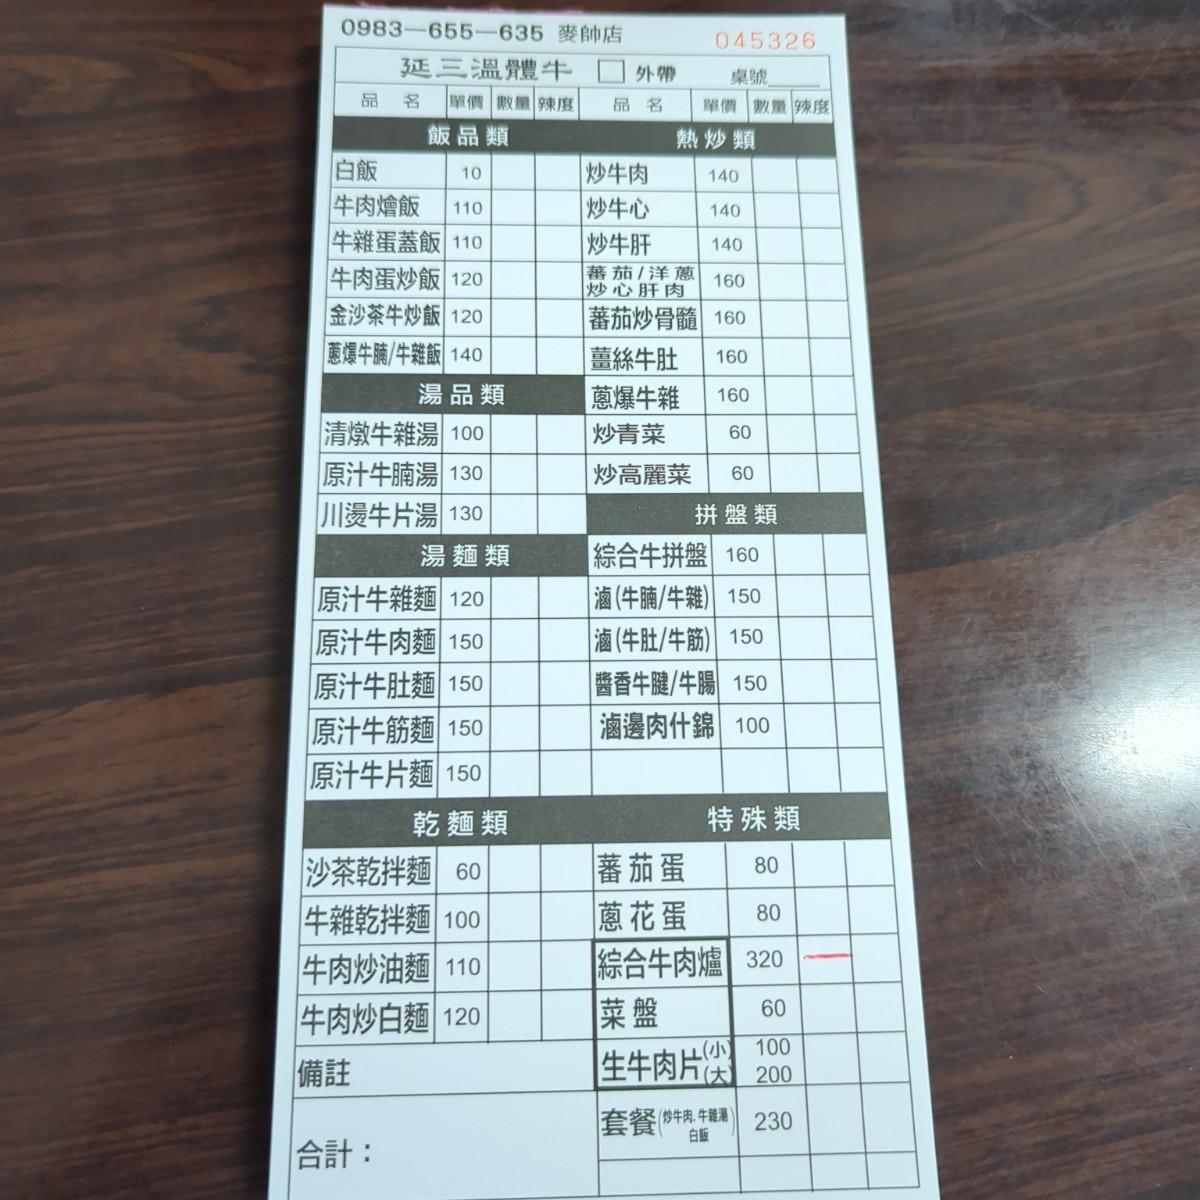 0983—655—635 麥帥店 045326
延三溫體牛 外帶 桌號
品名 單價 數量 辣度 品名 單價 數量 辣度
飯品類 熱炒類
白飯 10 炒牛肉 140
牛肉燴飯 110 炒牛心 140
牛雜蛋蓋飯 110 炒牛肝 140
牛肉蛋炒飯 120 蕃茄/洋蔥炒心肝肉 160
金沙茶牛炒飯 120 蕃茄炒骨髓 160
蔥爆牛腩/牛雜飯 140 薑絲牛肚 160
湯品類 蔥爆牛雜 160
清燉牛雜湯 100 炒青菜 60
原汁牛腩湯 130 炒高麗菜 60
川燙牛片湯 130 拼盤類
湯麵類 綜合牛拼盤 160
原汁牛雜麵 120 滷(牛腩/牛雜) 150
原汁牛肉麵 150 滷(牛肚/牛筋) 150
原汁牛肚麵 150 醬香牛腱/牛腸 150
原汁牛筋麵 150 滷邊肉什錦 100
原汁牛片麵 150
乾麵類 特殊類
沙茶乾拌麵 60 蕃茄蛋 80
牛雜乾拌麵 100 蔥花蛋 80
牛肉炒油麵 110 綜合牛肉爐 320
牛肉炒白麵 120 菜盤 60
備註 生牛肉片(小) 100
(大) 200
套餐(炒牛肉.牛雜湯白飯) 230
合計：